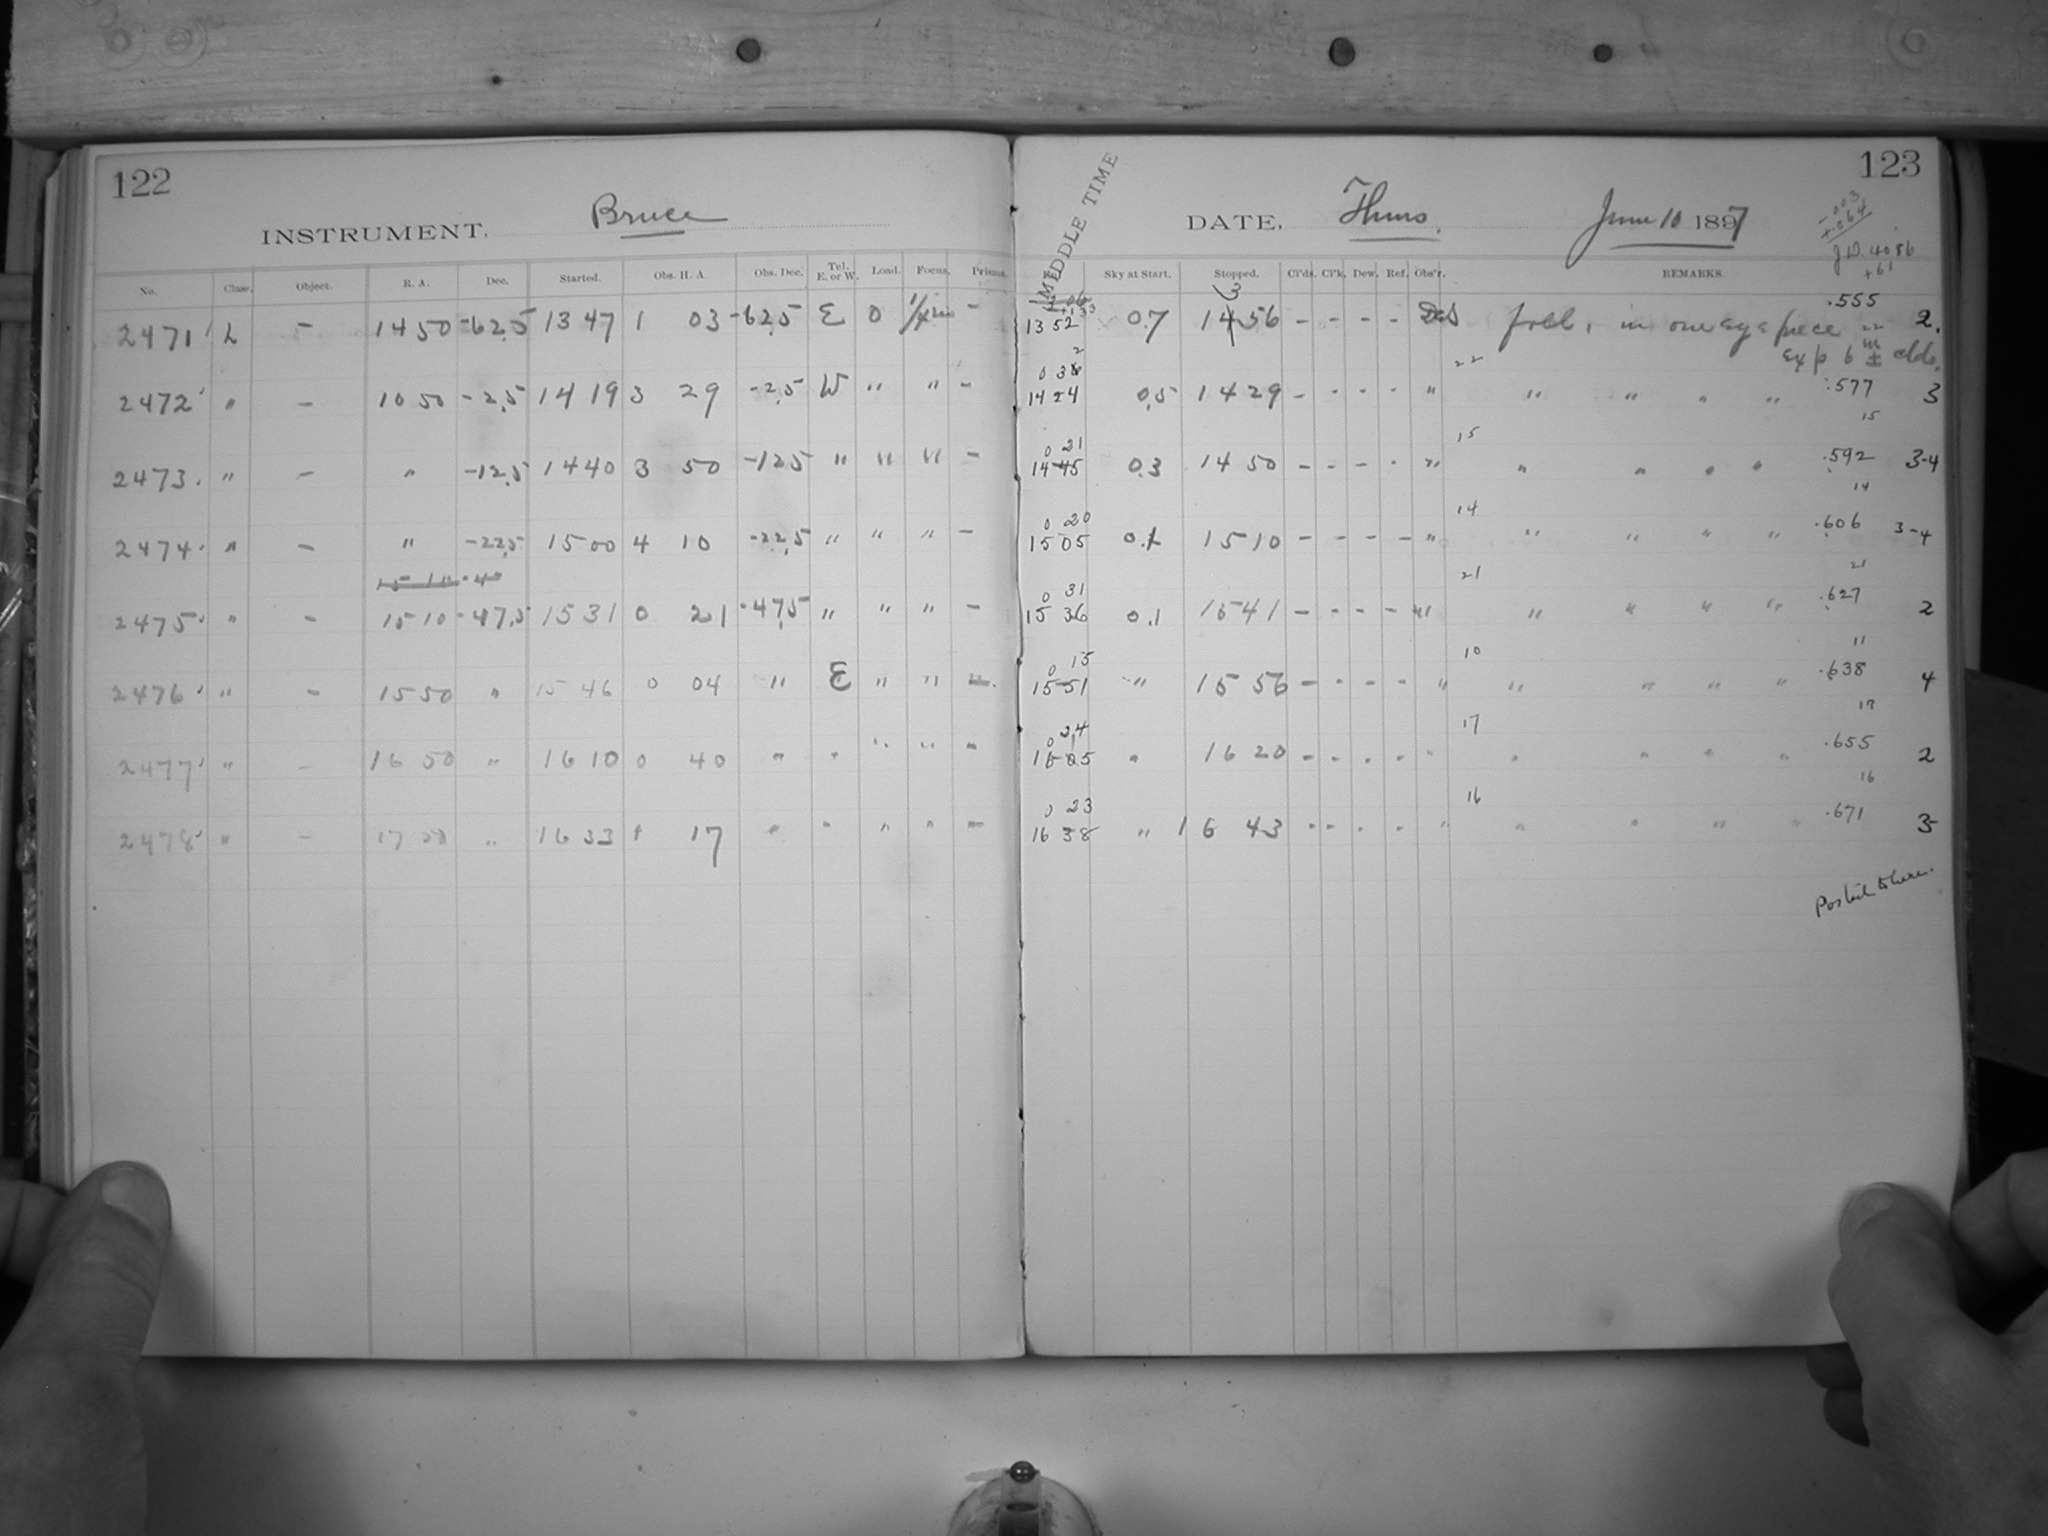 122
INSTRUMENT. Bruce
No. Class. Object. R. A. Dec. Started. Obs. H. A. Obs. Dec. Tel. E. or W. Load. Focus. Prisms.
2471 L - 14 50 -62.5 13 47 1 03 -62.5 E 0 -
2472 " - 10 50 -2.5 14 19 3 29 -2.5 W " " -
2473 " - " -12.5 14 40 3 50 -12.5 " " " -
2474 " - " -22.5 15 00 4 10 -22.5 " " " -
2475 " - 15 10 -47.5 15 31 0 21 -47.5 " " " -
2476 " - 15 50 " 15 46 0 04 " E " "
2477 " - 16 50 " 16 10 0 40 " " " " "
2478 " - 16 33 17 " " " " "
123
MIDDLE TIME
DATE, Thurs. June 10 1897
-.003
+.064
J.D. 4086
+61
Sky at Start. Stopped. Cl'ds. Cl'k. Dew. Ref. Obs'r. REMARKS.
.555
13 52 0.7 56 - - - - in one eye piece 2.
22
exp 6 m ±
22
14 24 0.5 14 29 - - - - " " " " " .577 3
0 21 15 15
14 45 0.3 14 50 - - - - " " " " " .592 3-4
0 20 14 14
15 05 0.1 15 10 - - - - " " " " " .606 3-4
0 31 21 21
15 36 0.1 15 41 - - - - " " " " " .627 2
0 15 10 11
15 51 " 15 56 - - - - " " " " " .638 4
17 17
" 16 20 - - - - " " " " " .655 2
0 23 16 16
16 38 " 16 43 - - - - " " " " " .671 3
Posted to here.